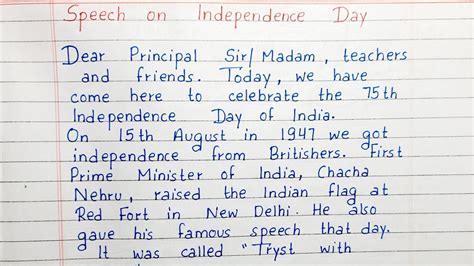 Speech on Independence Day
Dear Principal Sir/Madam, teachers
and friends. Today, we have
come here to celebrate the 75th
Independence Day of India.
On 15th August in 1947 we got
independence from Britishers. First
Prime Minister of India, Chacha
Nehru, raised the Indian flag at
Red Fort in New Delhi. He also
gave his famous speech that day.
It was called "Tryst with